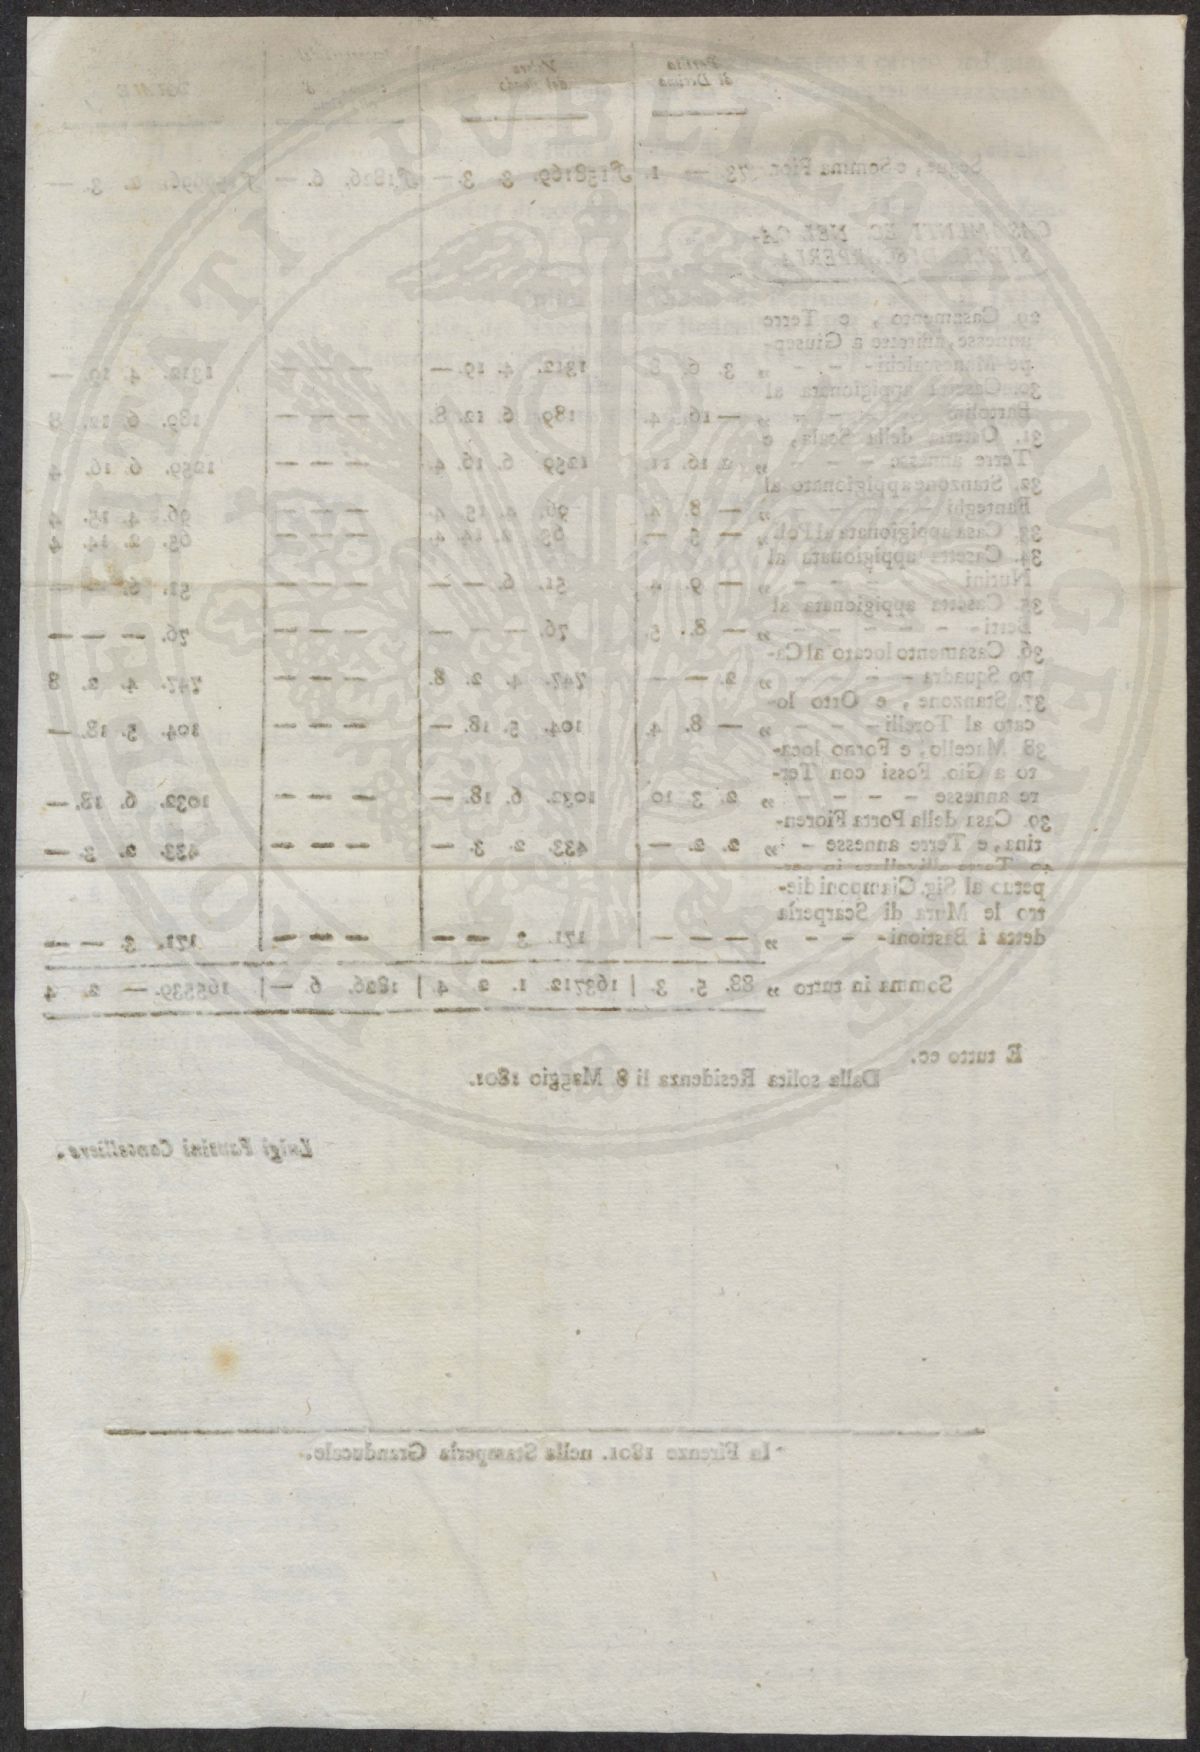 Partita di Decima | Valore del fondo | TOTALE
Segue, e Somma Fior. 73 — 1. | ƒ158169. 3 3. — | ƒ1826. 6. — | 2. 3. —
CASAMENTI EC. NEL CA-
STELLO DI SCARPERIA
29. Casamento, e Terre
annesse, affitte a Giusep-
pe Manescalchi - - - „ 3. 6. 8 | 1312. 4. 19. — | — — — | 1312. 4. 19. —
30. Casetta appigionata al
Bartolini - - - - „ — 16. 4. | 189 6. 12. 8. | — — — | 189. 6. 12. 8
31. Osteria della Scala, e
Terre annesse - - - - „ 2. 16. 11 | 1259 6. 16. 4. | — — — | 1259. 6. 16. 4
32. Stanzone appigionato al
Banteghi - - - - - „ — 8. 4. | 96. 4. 15. 4. | — — — | 96. 4. 15. 4
33. Casa appigionata al Poli „ — 5 —. | 65 2. 14. 4. | — — — | 65. 2. 14. 4
34. Casetta appigionata al
Nutini - - - - - „ — 9. 4. | 51. 6. — — | — — — | 51. 6. — —
35. Casetta appigionata al
Berti - - - - - - „ — 8. 5. | 76. — — — | — — — | 76. — — —
36. Casamento locato al Ca-
po Squadra - - - - - „ 2. — — | 747. 4. 2. 8. | — — — | 747. 4. 2. 8
37. Stanzone, e Orto lo-
cato al Torelli - - - - „ — 8. 4. | 104. 5. 18. — | — — — | 104. 5. 18. —
38. Macello, e Forno loca-
to a Gio. Fossi con Ter-
re annesse - - - - - „ 2. 3. 10 | 1032. 6. 18. — | — — — | 1032. 6. 18. —
39. Casa della Porta Fioren-
tina, e Terre annesse - „ 2. 2. — | 433. 2. 3. — | — — — | 433. 2. 3. —
40. Terre allivellate in per-
petuo al Sig. Ciamponi die-
tro le Mura di Scarperia
detta i Bastioni - - - „ — — — | 171. 3 — — | — — — | 171. 3. — —
Somma in tutto „ 88. 5. 3. | 163712. 1. 2. 4 | 1826. 6 — | 165539. — 2. 4
E tutto ec.
Dalla solita Residenza li 8. Maggio 1801.
Luigi Cancelliere.
In Firenze 1801. nella Stamperìa Granducale.